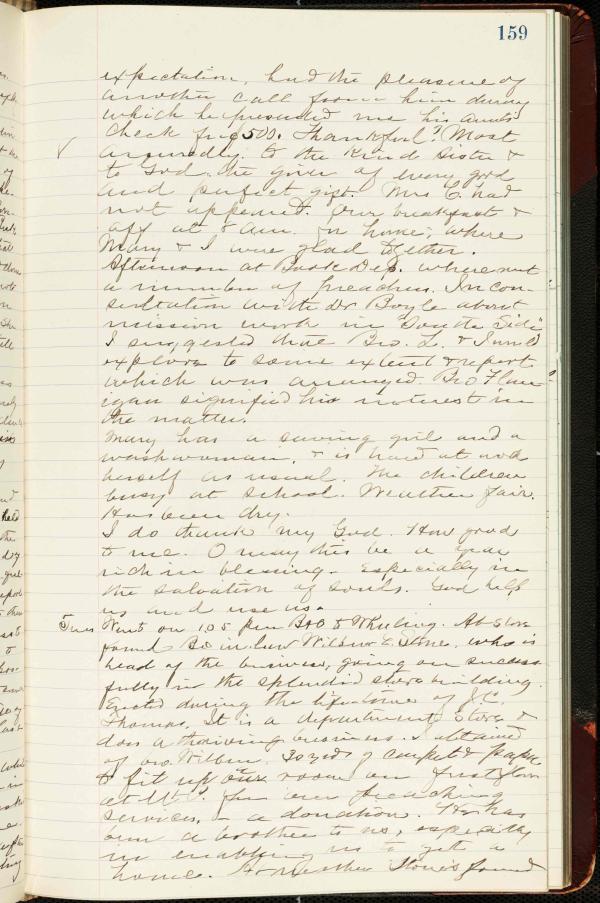 159
expectation, had the pleasure of
another call from him during
which he presented me his aunt's
check for $500. Thankful? Most
assuredly to the kind Sister &
to God, the giver of every good
and perfect gift. Mrs C. had
not appeared. Our breakfast &
off at 8 a.m. for home; where
Mary & I were glad together.
Afternoon at Book Dep. where met
a number of preachers. In con-
sultation with Dr Boyle about
mission work in "South Side"
I suggested that Bro. L. & I would
explore to some extent & report
which was arranged. Bro Flan-
igan signified his interest in
the matter.
Mary has a sewing girl and a
washwoman, & is hard at work
herself as usual. The children
busy at school. Weather fair.
Has been dry.
I do thank my God. How good
to me. O may this be a year
rich in blessing. Especially in
the salvation of souls. God help
us and use us.
Tues Went on 1.05 p.m B&O to Wheeling. At store
found Bro in law Wilbur E. Stone, who is
head of the business, going on success-
fully in the splendid store building.
Erected during the lifetime of J.C.
Thomas. It is a department store &
does a thriving business. I obtained
of bro. Wilbur, 30 yds of carpet & paper
to fit up our room on first floor
at for our preaching
services, - a donation. He has
been a brother to us, especially
in enabling us to get a
home. Mother Stone's found